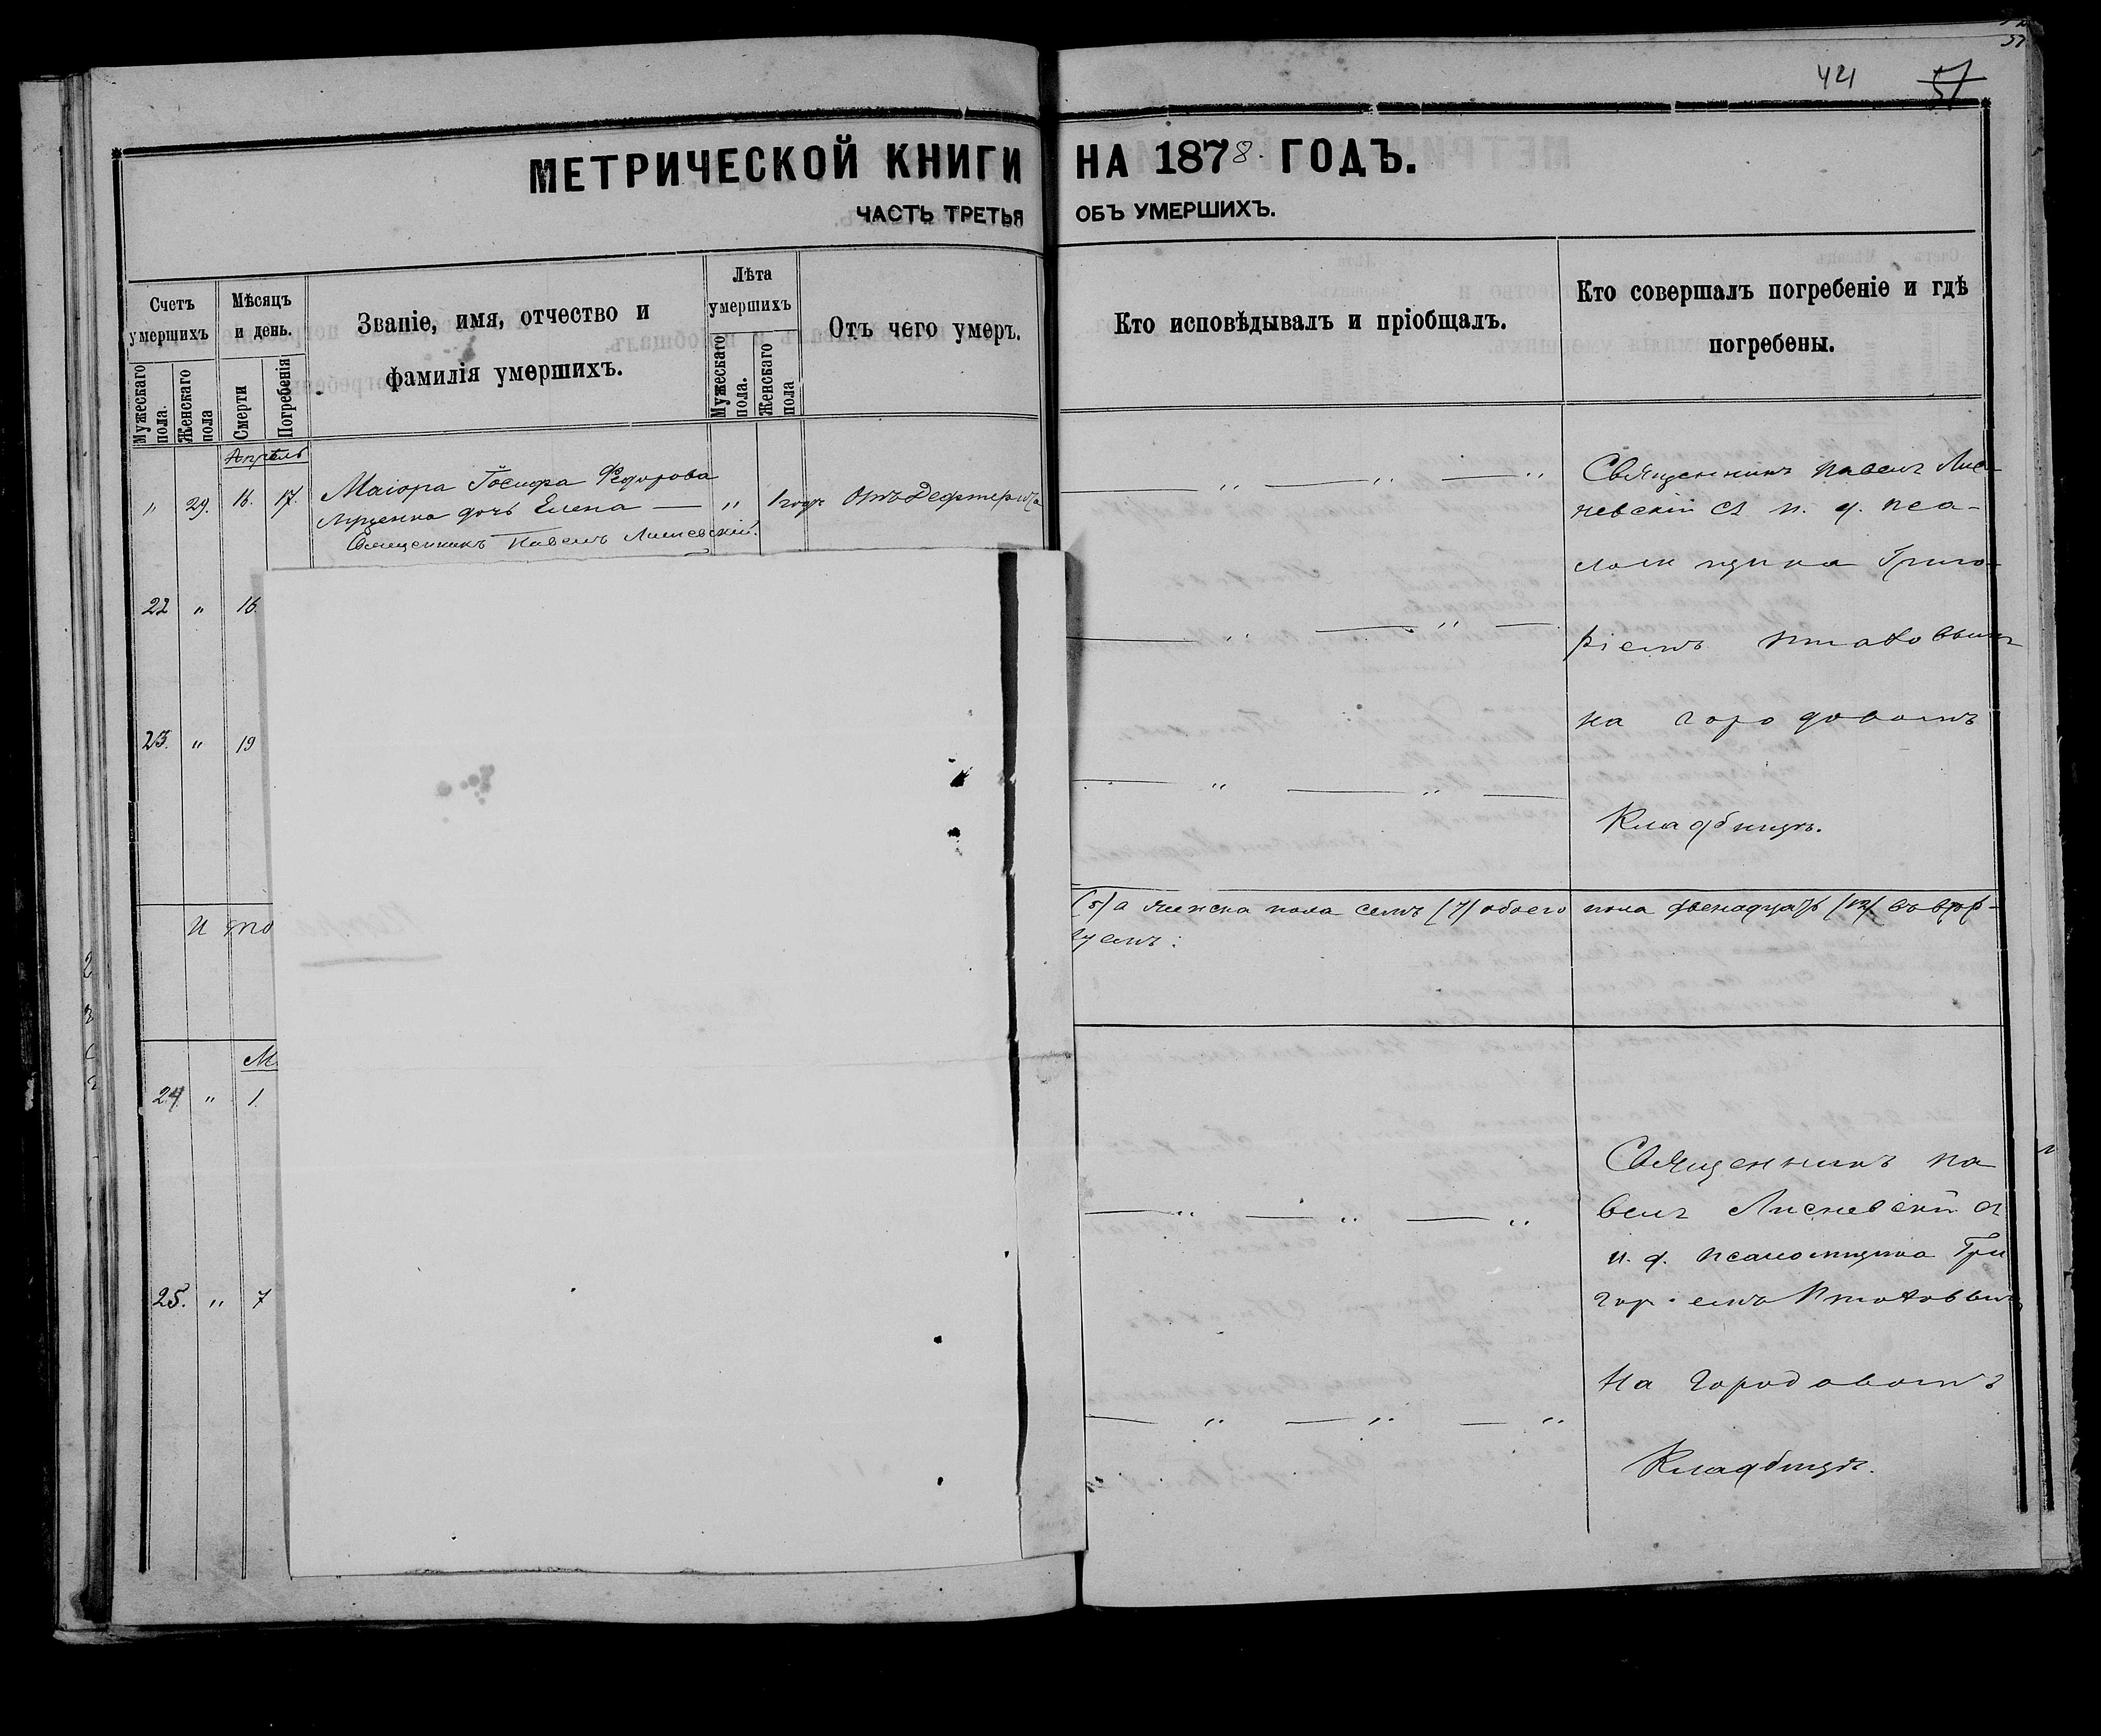 421 57
МЕТРИЧЕСКОЙ КНИГИ НА 1878 ГОДЪ.
ЧАСТЬ ТРЕТЬЯ ОБЪ УМЕРШИХЪ.
Счетъ умершихъ
Мужескаго пола.
Женскаго пола
Мѣсяцъ и день.
Смерти
Погребенія
Званіе, имя, отчество и
фамилія умершихъ.
Лѣта умершихъ
Мужескаго пола.
Женскаго пола
Отъ чего умеръ.
Кто исповѣдывалъ и пріобщалъ.
Кто совершалъ погребеніе и гдѣ
погребены.
Апрѣль
" 29. 16. 17. Маіора Іосифа Федорова
дочь Елена — " 1 годъ Отъ Дефтерита
Священникъ Павелъ Лисневскій.
— " — " — "
Священникъ Павелъ Лис-
невскій съ и. д. пса-
ломщика Григо-
ріемъ
на городовомъ
Кладбищѣ.
22 " 16.
— " — " —
23. " 19
— " — " —
Ито
(5) а женска пола семь (7) обоего пола двенадцать (12)
М
24 " 1.
— " — " — "
25. " 7
— " — " — "
Священникъ Па
велъ Лисневскій съ
и. д. псаломщика Гри
горіемъ
на Городовомъ
Кладбищѣ.